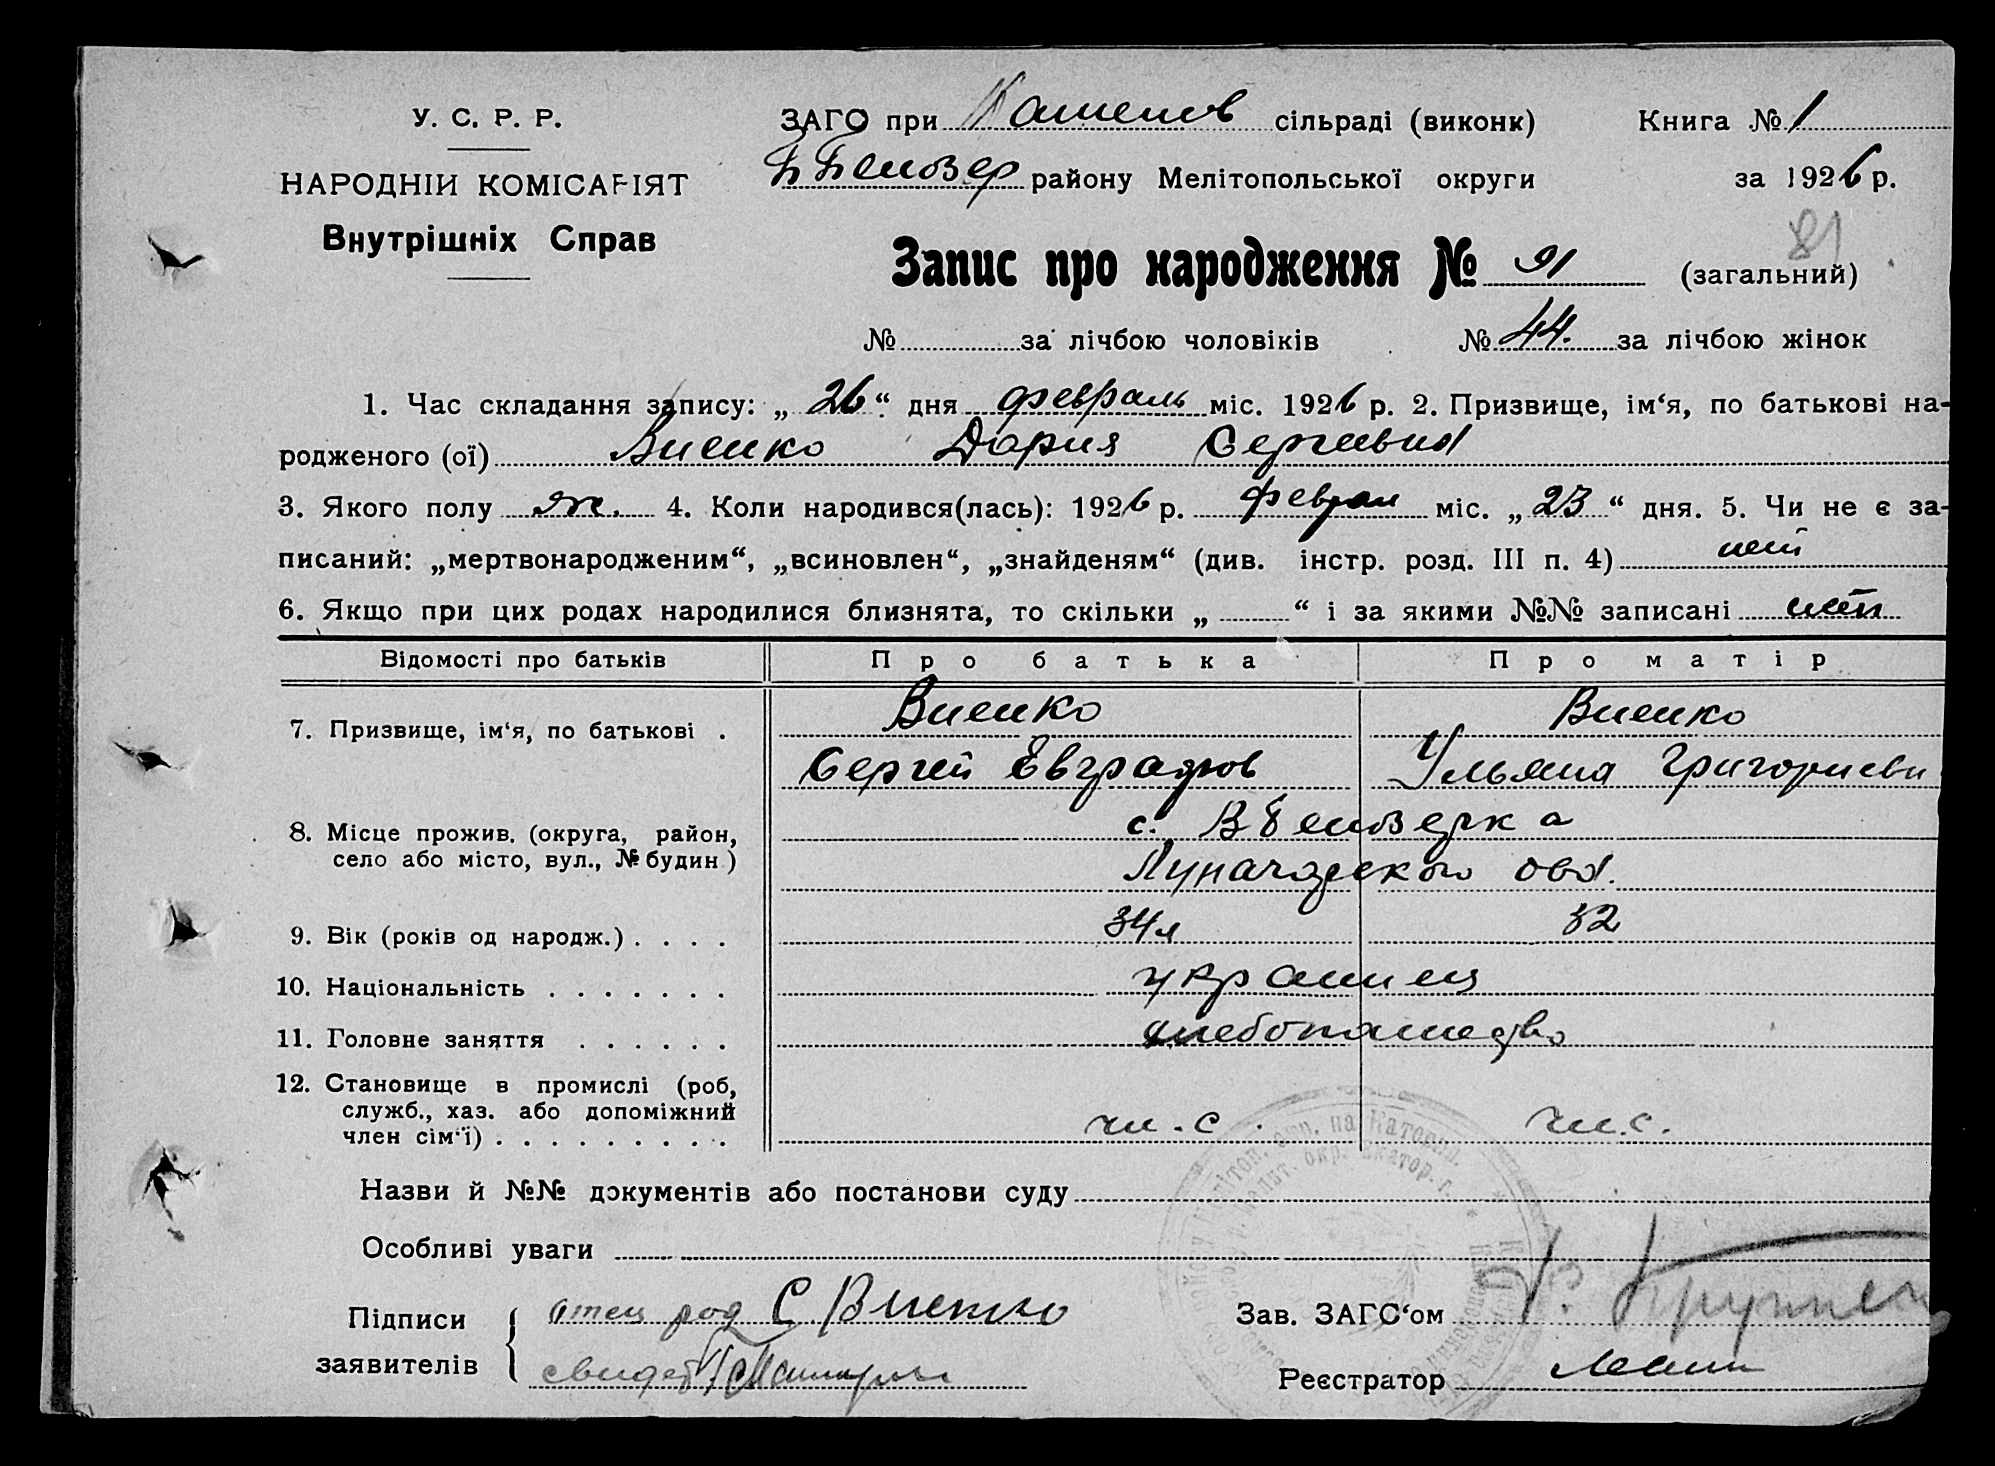 У. С. Р. Р.
НАРОДНІЙ КОМІСАРІЯТ
Внутрішніх Справ
ЗАГС при Каменов сільраді (виконк) Книга № 1
Б Белозер району Мелітопольської округи за 1926 р.
81
Запис про народження № 91 (загальний)
№ за лічбою чоловіків № 44. за лічбою жінок
1. Час складання запису: „26“ дня февраль міс. 1926 р. 2. Призвище, ім‘я, по батькові на-
родженого (ої) Виенко Дария Сергеевна
3. Якого полу ж. 4. Коли народився(лась): 1926 р. феврал міс. „23“ дня. 5. Чи не є за-
писаний: „мертвонародженим“, „всиновлен“, „знайденям“ (див. інстр. розд. III п. 4) нет
6. Якщо при цих родах народилися близнята, то скільки „ “ і за якими №№ записані нет
Відомості про батьків Про батька Про матір
7. Призвище, ім‘я, по батькові . Виенко Виенко
Сергей Евграфов Ульяна Григориевн
8. Місце прожив. (округа, район, с. В Белозерка
село або місто, вул., № будин)
9. Вік (років од народж.) . . . . 34 л 32
10. Національність . . . . . . . украинец
11. Головне заняття . . . . . . хлебопашество
12. Становище в промислі (роб,
служб., хаз. або допоміжний
член сім‘ї) . . . . . . . . . чл. с. чл. с.
Назви й №№ документів або постанови суду
Особливі уваги
Підписи отец С Виенко Зав. ЗАГС‘ом
заявителів свидет Реєстратор